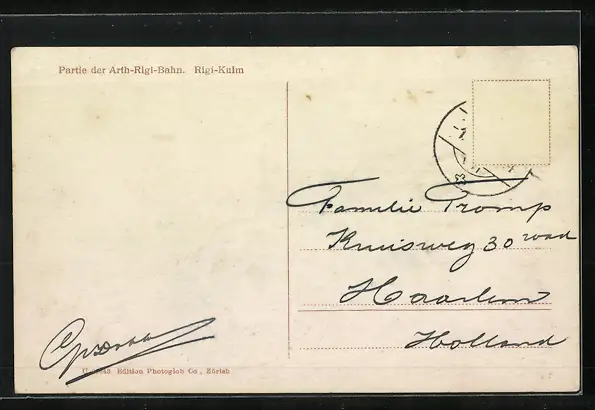 Partie der Arth-Rigi-Bahn. Rigi-Kulm
Familie Tromp
Kruisweg 30 rood
Haarlem
Holland
Edition Photoglob Co., Zürich